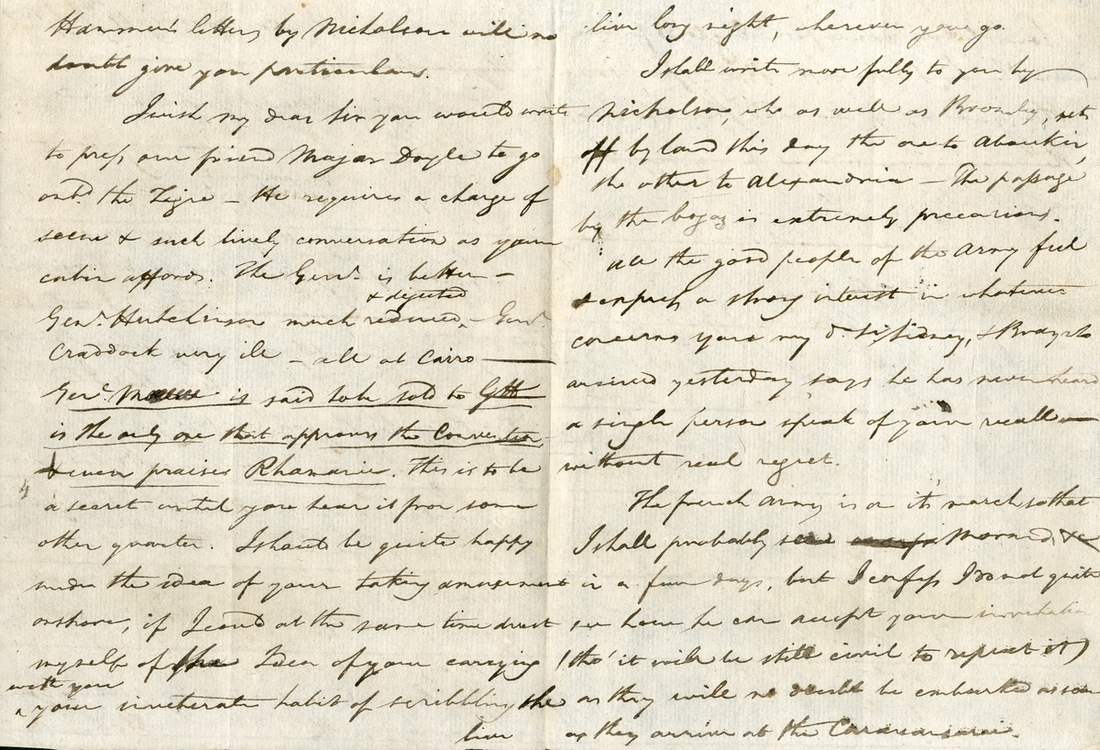 Hammer's letters by Nicholson will no
doubt give you particulars.
I wish my dear Sir you would write
to press our friend Major Doyle to go
onbd. the Tigre – He requires a change of
scene & such lively conversation as your
cabin affords. The Genl. is better –
& dejected
Genl. Hutchinson much reduced, – Genl.
Craddock very ill – all at Cairo
Genl. is said to be sold to
is the only one that approves the Convention
& even praises Rhamanie. This is to be
a secret until you hear it from some
other quarter. I should be quite happy
under the idea of your taking amusement
onshore, if I could at the same time divest
myself of the Idea of your carrying
with you
your inveterate habit of scribbling the
live
live long night, wherever you go.
I shall write more fully to you by
Nicholson, who as well as Bromley, sets
off by land this day the one to Aboukir,
the other to Alexandria – The passage
by the bogaz is extremely precarious.
All the good people of the Army feel
& express a strong interest in whatever
concerns you my dr. Sr Sidney, &
arrived yesterday says he has never heard
a single person speak of your recall
without real regret.
The french Army is on its march so that
I shall probably Morand, &c
in a few days, but I confess I do not quite
see how he can accept your invitation
(tho' it will be still civil to repeat it)
as they will no doubt be embarked as soon
as they arrive at the Caravanserai.